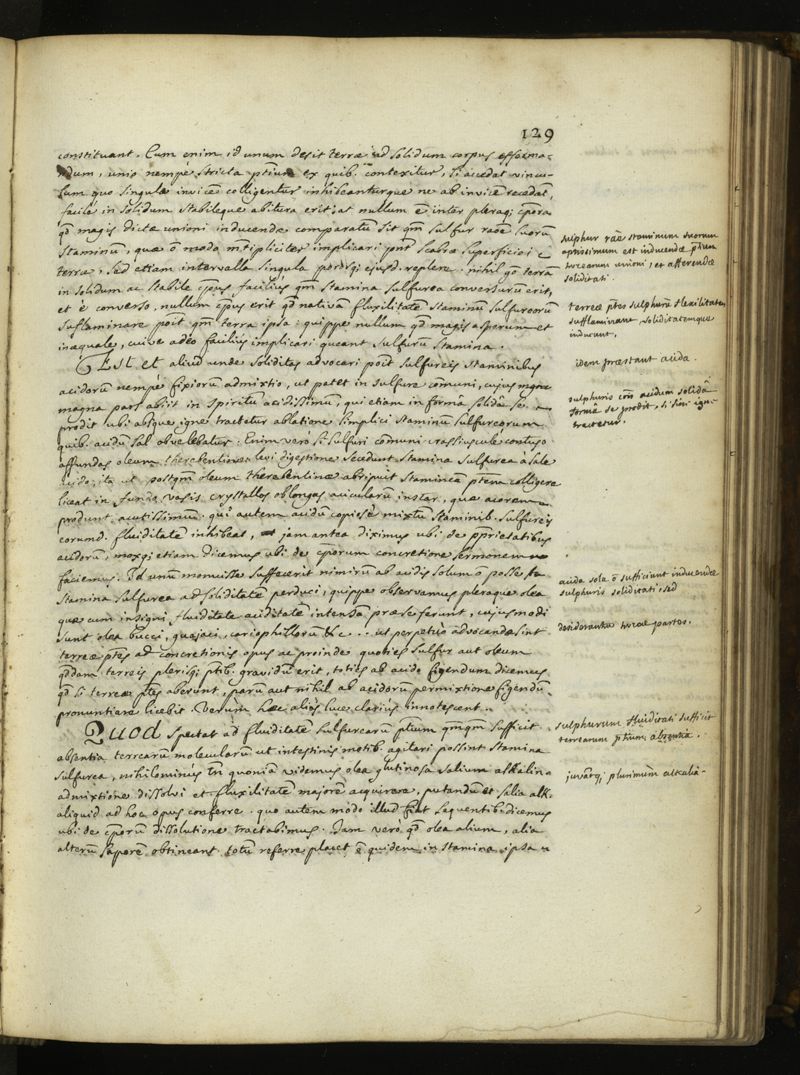 129
constituant. Cum enim id unum desit terræ ad solidum corpus efforma-
ndum, unio nempè stricta ptium ex quib. contexitur, si accedat vincu-
lum quo singulæ invicē colligentur inhibeanturque ne ab invicē recedāt,
facilè in solidum stabileque abitura erit; at nullum ē inter pleraq; cpora
qd magis dictæ unioni inducendæ comparatū sit qm sulfur raōe suorū
staminū, quæ ō modo mtipliciter implicari pnt scabræ superficiei
terræ, sed etiam intervalla singula porosq; ejusd. replere. nihil go terrā
in solidum ac stabile cpus facilius qm stamina sulfurea conversurū erit,
et è converso, nullum cpus erit qd nativā fluxilitatē staminū sulfureorū
sufflaminare poit qm terra ipsa; quippe nullum qd magis asperum et
inæquale, cuive adeo facilius implicari queant sulfuru stamina.
Est et aliud unde soliditas advocari poit sulfureis staminibus
acidorū nempè fixiorū admixtio, ut patet in sulfure cōmuni, cujus
magna pars abiit in spiritū acidissimū, qui etiam in formā solidā se
prodit ubi absque igne tractetur ablatione simplici staminū sulfureorum
quib. acidū sal obvelebatur. Enim verò si sulfuri cōmuni crassiuscule contuso
affundas oleum therebentinæ levi digestione secedunt stamina sulfurea à sale
acido, ita ut postqm oleum therebentinæ abripuit staminea ptem colligere
liceat in fundo vasis crystallos oblongas acicularū instar, quæ acorem
produnt acutissimum. qui autem acidū copiosè mixtū staminib. sulfureis
eorumd. fluiditatē inhibeat, jam antea diximus ubi de pprietatibus
acidorū, moxq; etiam dicemus ubi de cporum concretione sermonem
faciemus. Id unū monuisse suffecerit nimirū ab acidis solum ō posse
stamina sulfurea ad soliditatē perduci, quippe observamus pleraque olea
quæ cum insigni fluiditate aciditatē intensā præ se ferunt, cujusmodi
sunt olea bucci, guajaci, cariophillorū &c... ut perpetuò advocandæ sint
terreæ ptes ad concretionis opus ac proinde quoties sulfur aut oleum
qddam terreis plerisq; ptib. gravidū erit, toties ab acido figendum dicemus
qd si terreæ ptes aberunt, parū aut nihil ab acidorū permixtione figendū
pronuntiare licebit. Verum hæc aliàs luce clarius innotescent.
Quod spectat ad fluiditatē sulfurearū ptium qmqm sufficit
absentia terrearū molecularū ut intestinis motib. agitari possint stamina
sulfurea, nihilominùs tn quoniā videmus olea glutinosa salium alkalino
admixtione dissolvi et fluxilitatē majorē acquirere, putandū et salia alk.
aliquid ad hoc opus conferre. quo autem modo illud fiat sequentib. dicemus
ubi de cporū dissolutione tractabimus. Jam verò qd olea alium, alia
alterū saporē obtineant totū referre placet ē quidem in stamina ipsa
sulphur raōe staminum suorum
aptissimum est inducendæ ptium
terrearum unioni, et afferendæ
soliditati.
terreæ ptes sulphurū flexilitatem
sufflaminant, soliditatemque
inducunt.
idem præstant acida.
sulphuris cōis acidum solidâ
formâ se prodit, si sine igne
tractetur.
acida sola ō sufficiunt inducendæ
sulphuris soliditati, sed
desiderantur terreæ partes.
sulphurum fluiditati sufficit
terrearum ptium absentia.
juvātq; plurimùm alkalia.